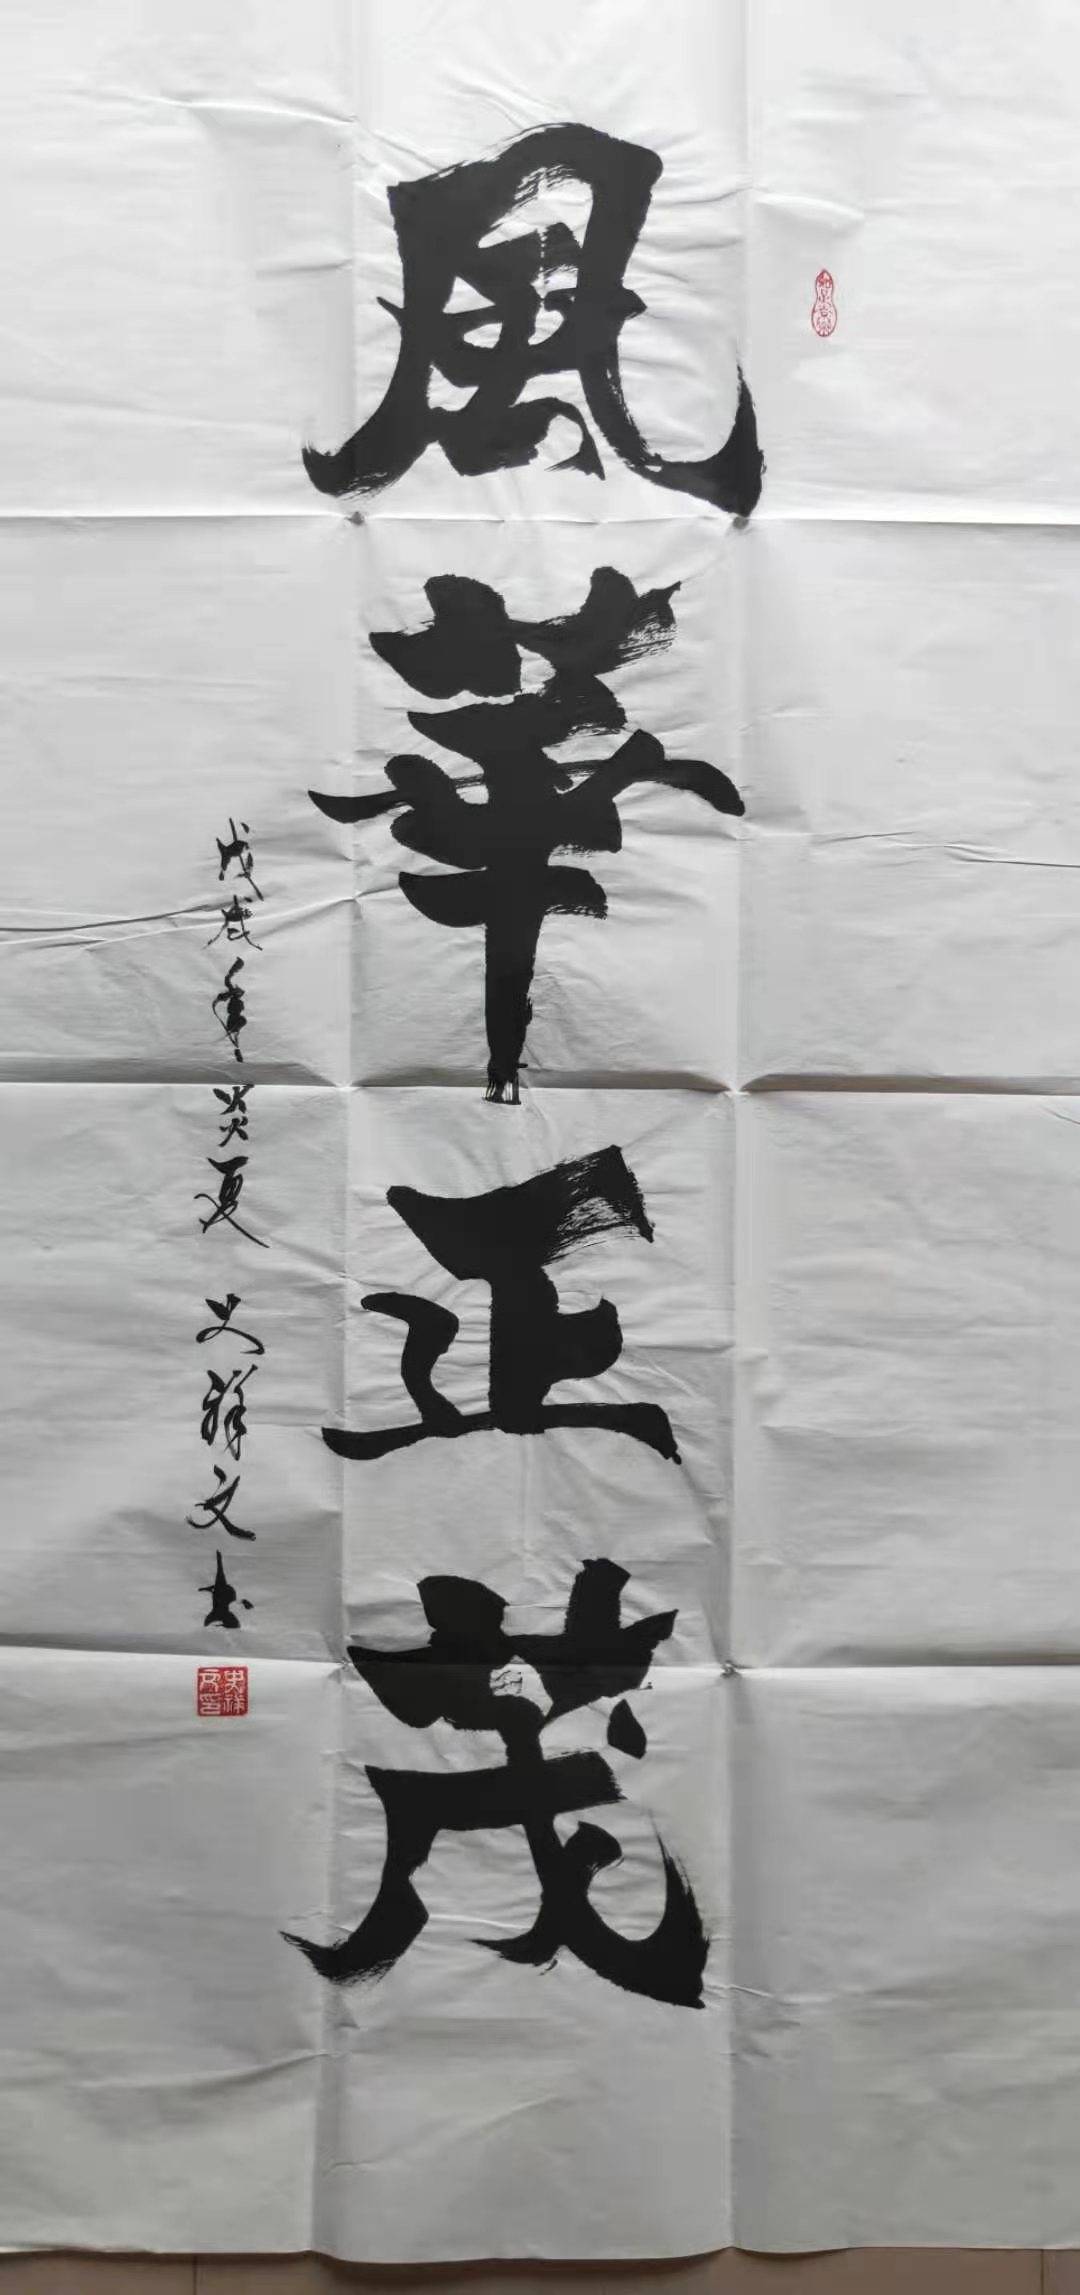 風華正茂
戊戌年炎夏 史祥文书
史祥文印